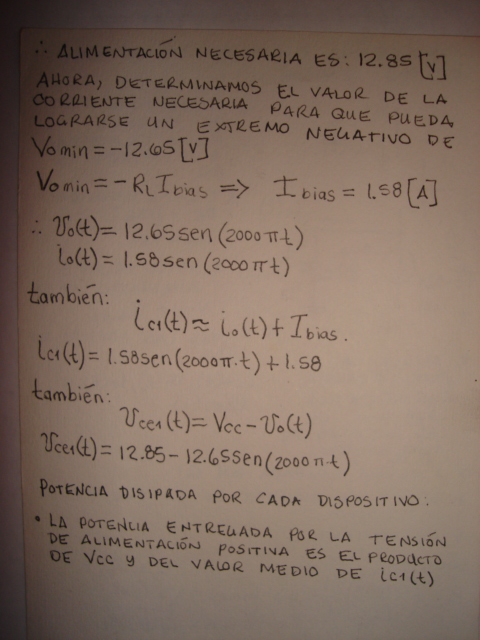 ∴ ALIMENTACIÓN NECESARIA ES: 12.85 [V]
AHORA, DETERMINAMOS EL VALOR DE LA
CORRIENTE NECESARIA PARA QUE PUEDA
LOGRARSE UN EXTREMO NEGATIVO DE
Vo min = -12.65 [V]
Vo min = -RL Ibias => Ibias = 1.58 [A]
∴ Vo(t) = 12.65 sen (2000πt)
io(t) = 1.58 sen (2000πt)
también:
ic1(t) ≈ io(t) + Ibias.
ic1(t) = 1.58 sen (2000π·t) + 1.58
también:
Vce1(t) = Vcc - Vo(t)
Vce1(t) = 12.85 - 12.65 sen (2000π·t)
POTENCIA DISIPADA POR CADA DISPOSITIVO:
• LA POTENCIA ENTREGADA POR LA TENSIÓN
DE ALIMENTACIÓN POSITIVA ES EL PRODUCTO
DE Vcc Y DEL VALOR MEDIO DE ic1(t)